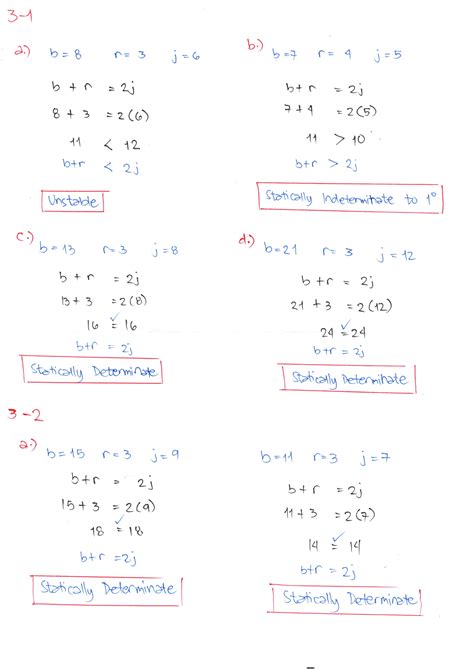 3-1
a.) b=8 r=3 j=6
b + r = 2j
8 + 3 = 2(6)
11 < 12
b+r < 2j
Unstable
b.) b=7 r=4 j=5
b+r = 2j
7+4 = 2(5)
11 > 10
b+r > 2j
Statically Indeterminate to 1°
c.) b=13 r=3 j=8
b+r = 2j
13+3 = 2(8)
16 = 16
b+r = 2j
Statically Determinate
d.) b=21 r=3 j=12
b+r = 2j
21+3 = 2(12)
24 = 24
b+r = 2j
Statically Determinate
3-2
a.) b=15 r=3 j=9
b+r = 2j
15+3 = 2(9)
18 = 18
b+r = 2j
Statically Determinate
b=11 r=3 j=7
b+r = 2j
11+3 = 2(7)
14 = 14
b+r = 2j
Statically Determinate